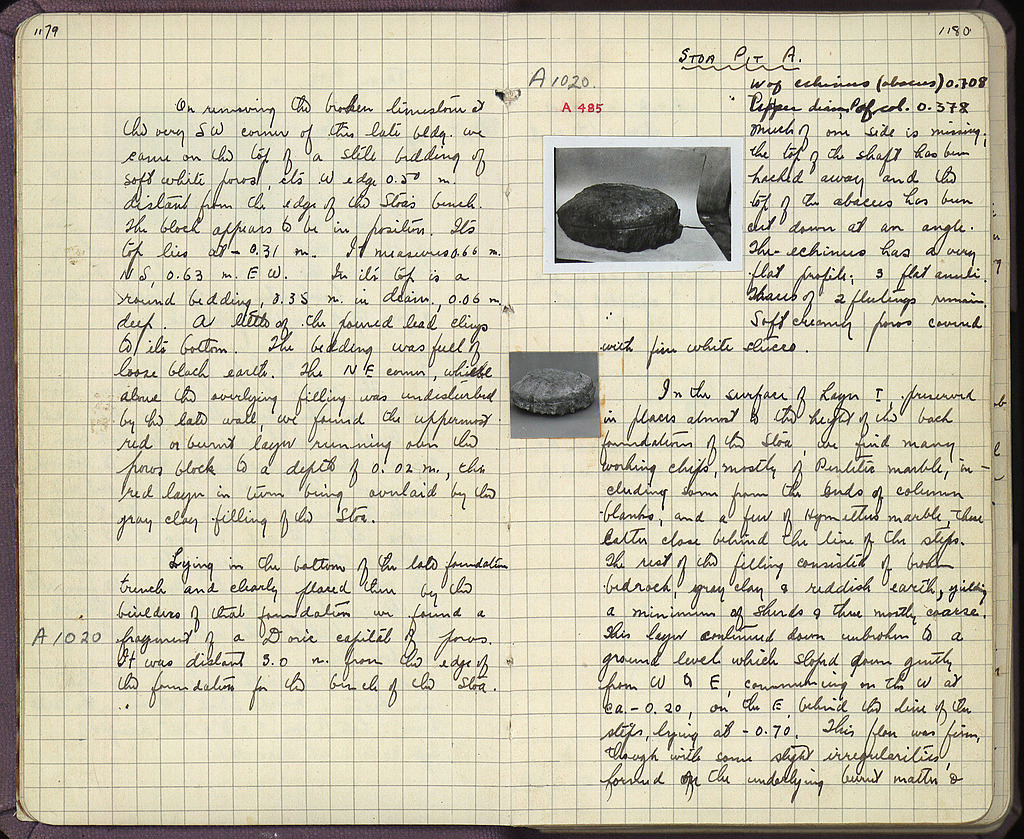 1179
On removing the broken limestone at
the very SW corner of this late bldg. we
came on the top of a stele bedding of
soft white poros, its W edge 0.50 m.
distant from the edge of the Stoa's bench.
The block appears to be in position. Its
top lies at - 0.31 m. It measures 0.66 m.
N S, 0.63 m. E W. In its top is a
round bedding, 0.35 m. in diam., 0.06 m.
deep. A little of the poured lead clings
to its bottom. The bedding was full of
loose black earth. The NE corner, while
above the overlying filling was undisturbed
by the late wall, we found the uppermost
red or burnt layer running over the
poros block to a depth of 0.02 m., this
red layer in turn being overlaid by the
gray clay filling of the Stoa.
Lying in the bottom of the late foundation
trench and clearly placed there by the
builders of that foundation we found a
A 1020 fragment of a Doric capital of poros.
It was distant 3.0 m. from the edge of
the foundation for the bench of the Stoa.
1180
STOA PIT A.
A 1020.
A 485
W of echinus (abacus) 0.708
Upper diam. of col. 0.378
Much of one side is missing,
the top of the shaft has been
hacked away and the
top of the abacus has been
cut down at an angle.
The echinus has a very
flat profile; 3 flat annuli.
Traces of 2 flutings remain.
Soft creamy poros covered
with fine white stucco.
In the surface of Layer I, preserved
in places almost to the height of the back
foundations of the Stoa, we find many
working chips, mostly of Pentelic marble, in-
cluding some from the ends of column
blanks, and a few of Hymettus marble, these
latter close behind the line of the steps.
The rest of the filling consisted of broken
bedrock, gray clay & reddish earth, yielding
a minimum of sherds & these mostly coarse.
This layer continued down unbroken to a
ground level which sloped down gently
from W to E, commencing on the W at
ca. - 0.20, on the E, behind the line of the
steps, lying at - 0.70. This floor was firm,
though with some slight irregularities,
formed of the underlying burnt matter &